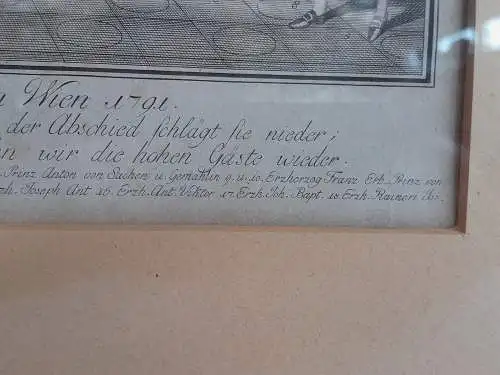 8
Wien 1791.
der Abschied schlägt sie nieder;
wir die hohen Gäste wieder.
Prinz Anton von Sachen u. Gemahlin 9. u. 10. Erzherzog Franz Erb. Prinz von
Joseph Ant. 16. Erzh. Ant. Viktor 17. Erzh. Joh. Bapt. 18 Erzh. Raineri